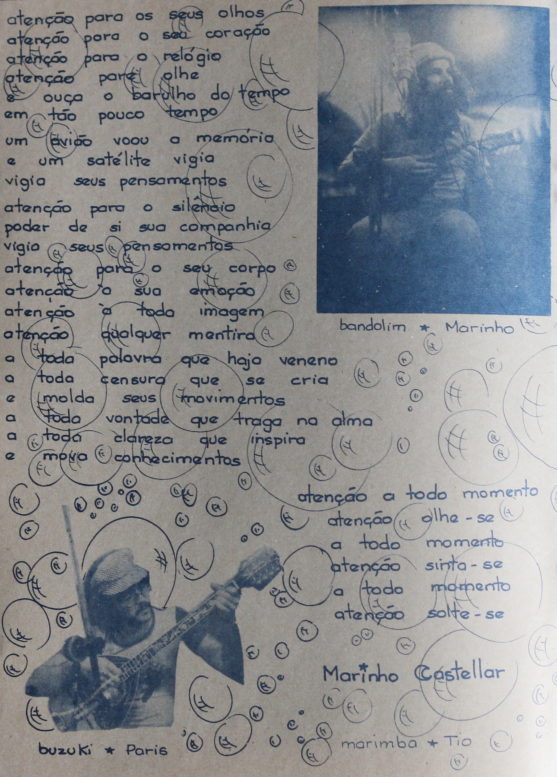 atenção para os seus olhos
atenção para o seu coração
atenção para o relógio
atenção pare olhe
e ouça o barulho do tempo
em tão pouco tempo
um avião voou a memória
e um satélite vigia
vigia seus pensamentos
atenção para o silêncio
poder de si sua companhia
vigia seus pensamentos
atenção para o seu corpo
atenção a sua emoção
atenção a toda imagem
atenção qualquer mentira
a toda palavra que haja veneno
a toda censura que se cria
e molda seus movimentos
a toda vontade que traga na alma
a toda clareza que inspira
e mova conhecimentos
bandolim ★ Marinho
atenção a todo momento
atenção olhe-se
a todo momento
atenção sinta-se
a todo momento
atenção solte-se
Marinho Castellar
buzuki ★ Paris
marimba ★ Tio